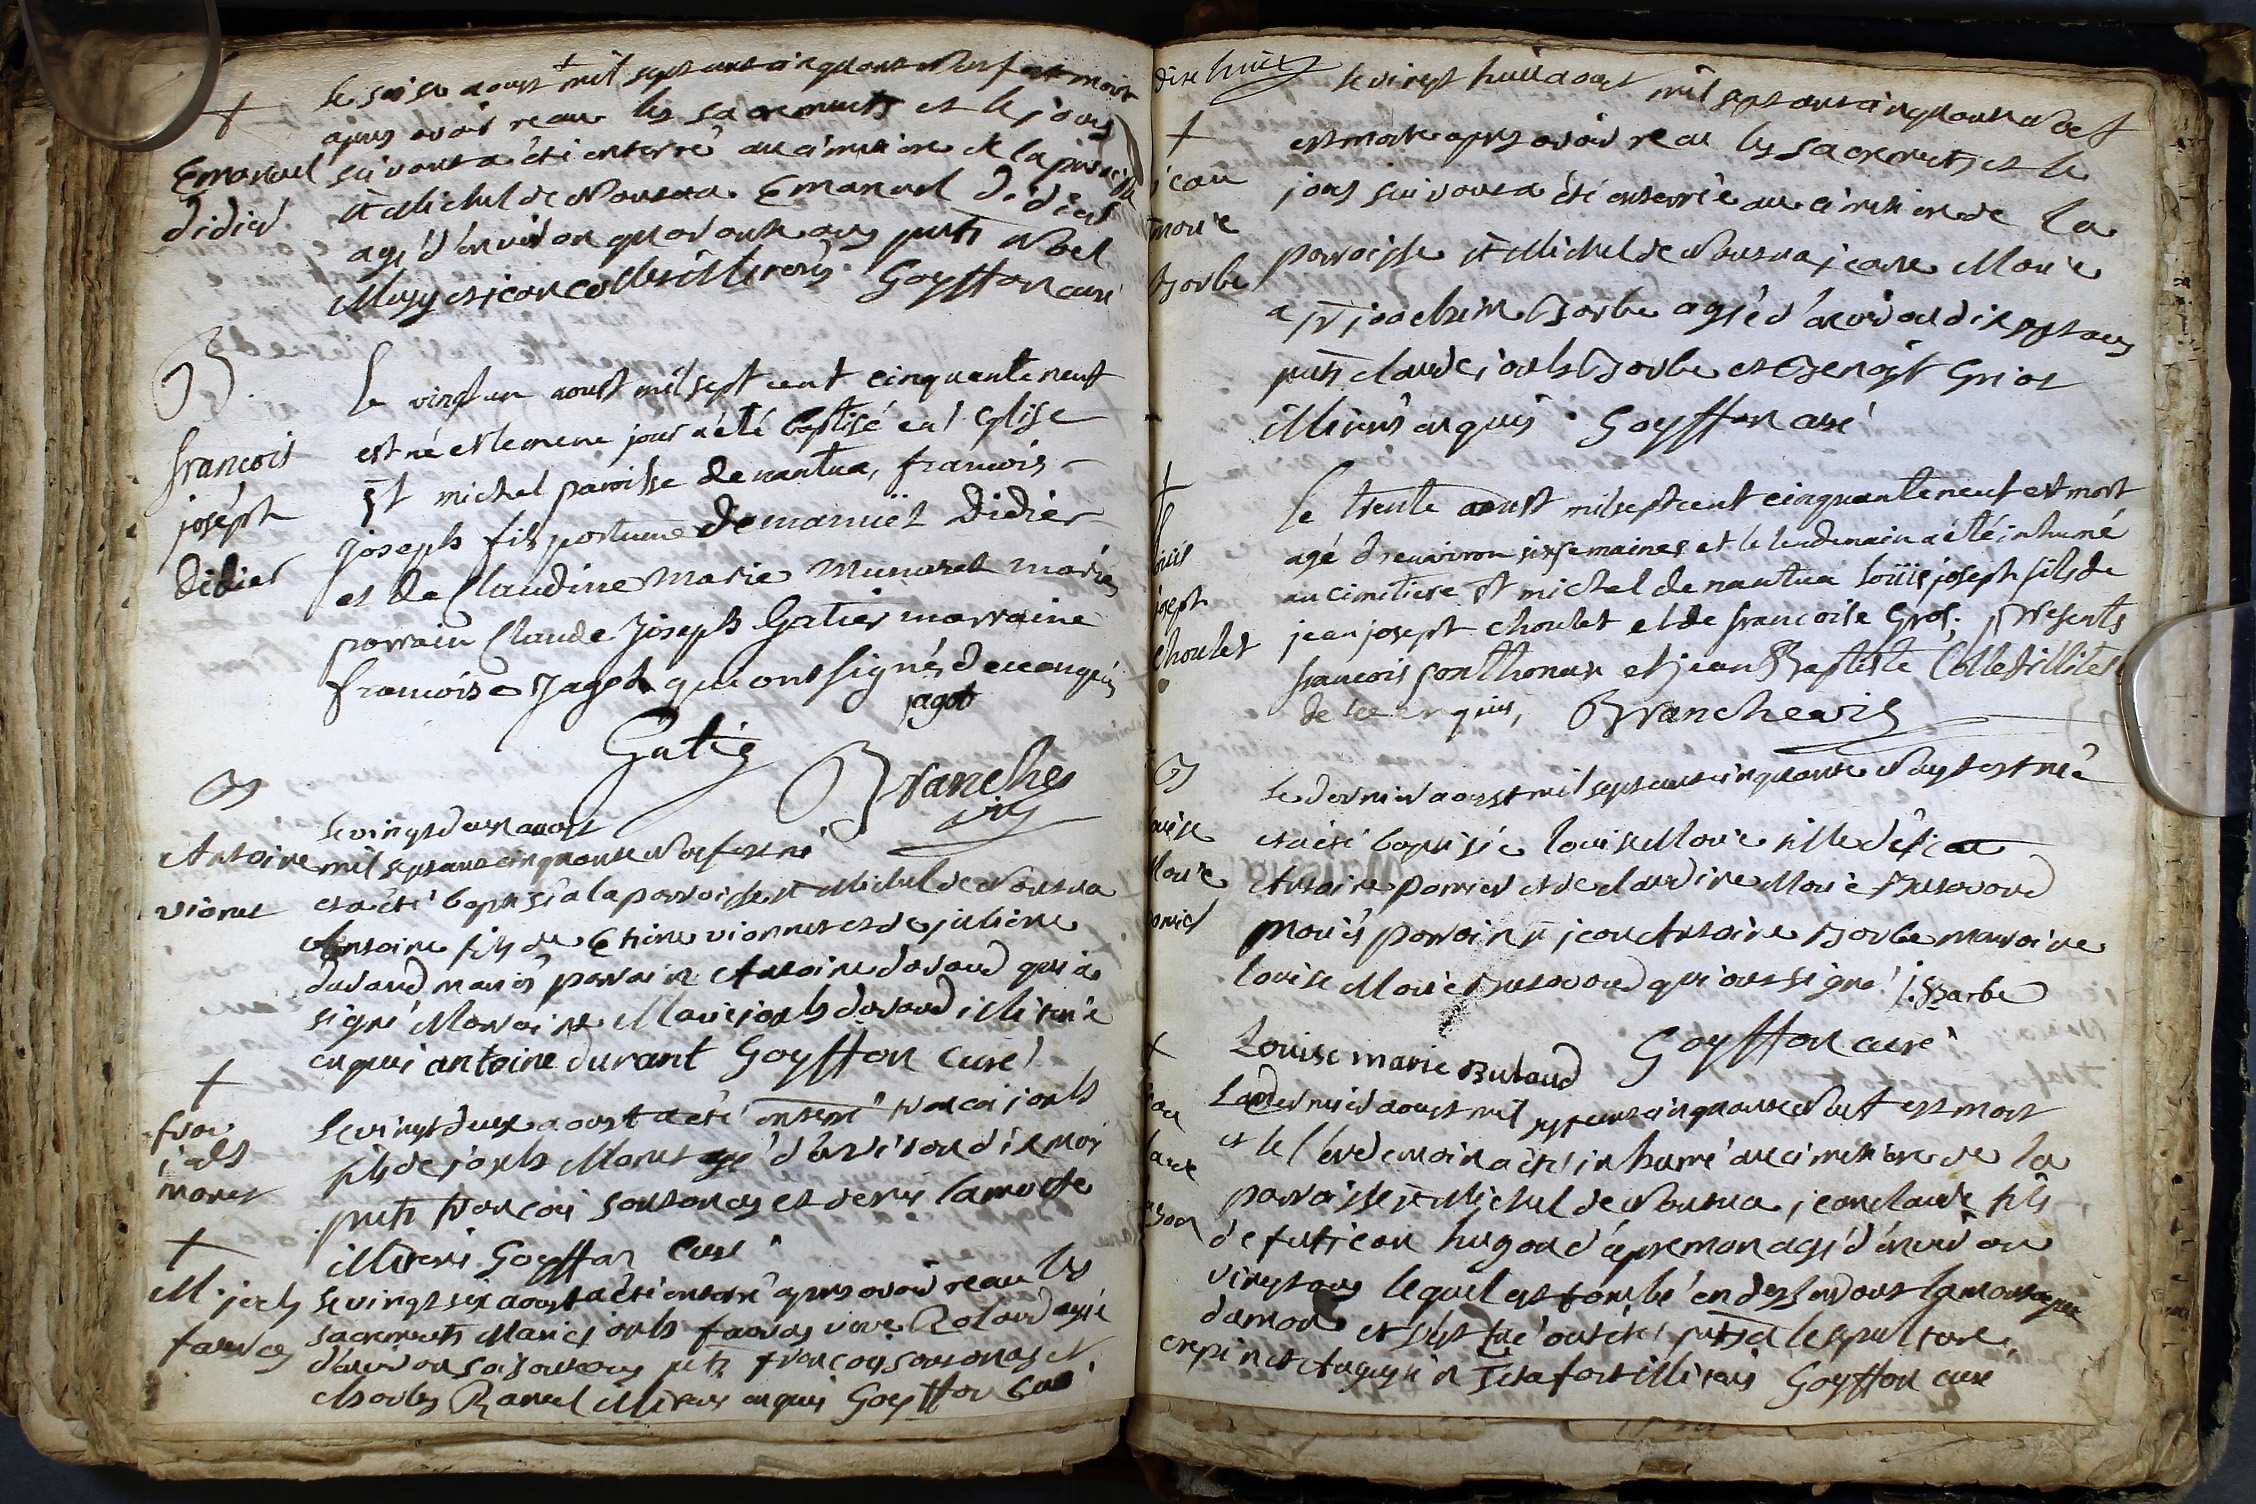 +
Emanuel
didier
Le seise aoust mil sept cent cinquante neuf est mort
apres avoir recu les sacrements et le jour
suivant a été enterré au cimetiere de la paroisse
st Michel de Nantua Emanuel Didier
agé d'environ quarante ans pnts Noel
Musy et jean collet illiterés Goyffon curé
B.
françois
joseph
didier
le vingt un aoust mil sept cent cinquante neuf
est né et le meme jour a été baptisé en l'eglise
st michel paroisse de nantua, francois
joseph fils postume demanuel Didier
et de Claudine Marie Munaret mariés
parrain Claude Joseph Gatier marraine
francoise Jagot qui ont signés de ce enquis
jagot
Gatier
Branche vic
B
Antoine
vionet
Le vingt deux aoust
mil sept cent cinquante neuf est né
et a été baptisé a la parroisse st Michel de Nantua
Antoine fils de Etiene vionnet et de juliene
durand mariés parrain Antoine durand qui a
signé Marraine Marie joseph durand illiterée
enquis antoine durant Goyffon curé
+
fran
josh
monet
Le vingt deux aoust a été enterré francois joseph
fils de joseph Monet agé d'environ dix mois
pnts francois santonas et denis lamotte
illiterés Goyffon curé
+
M. josh
favres
Le vingt six aoust a été enterré apres avoir recu les
sacrements Marie joseph favres veuve Roland agée
d'environ soisante ans pnts francois santonas et
charles Ravel illiterés enquis Goyffon curé
dixe huit
+
jean
marie
Barbe
Le vingt huit aoust mil sept cent cinquante neuf
est morte apres avoir recu les sacrements et le
jour suivant a été enterrée au cimetiere de la
parroisse st Michel de Nantua jeane Marie
a sr joachim Barbe agée d'environ dix sept ans
pnts claude joseph Barbe et Benoit Griot
illiterés enquis Goyffon curé
+
louis
joseph
choulet
Le trente aoust mil sept cent cinquante neuf est mort
agé d'environ six semaines et le lendemain a été inhumé
au cimetiere st michel de nantua Loüis joseph fils de
jean josept choulet et de francoise Gros. presents
francois ponthonar et jean Baptiste Collet illiteré
de ce enquis, Branche vic
B
louise
Marie
parried
Le dernier aoust mil sept cent cinquante neuf est née
et a été baptisée louise Marie fille de sr jean
Antoine parried et de claudine Marie Butavand
mariés parrain sr jean Antoine Barbe marraine
louise Marie Butavand qui ont signé j. Barbe
Louise marie Butavand Goyffon curé
+
jean
claude
hugon
Le dernier aoust mil sept cent cinquante neuf est mort
et le lendemain a été inhumé au cimetiere de la
parroisse st Michel de Nantua, jean claude fils
de fut jean hugon d'apremon agé d'environ
vingt ans lequel est tombé en dessendant la montagne
damon et s'est tué ont été pnts a la sepulture
crepin et Augustin Tetafort illiterés Goyffon curé